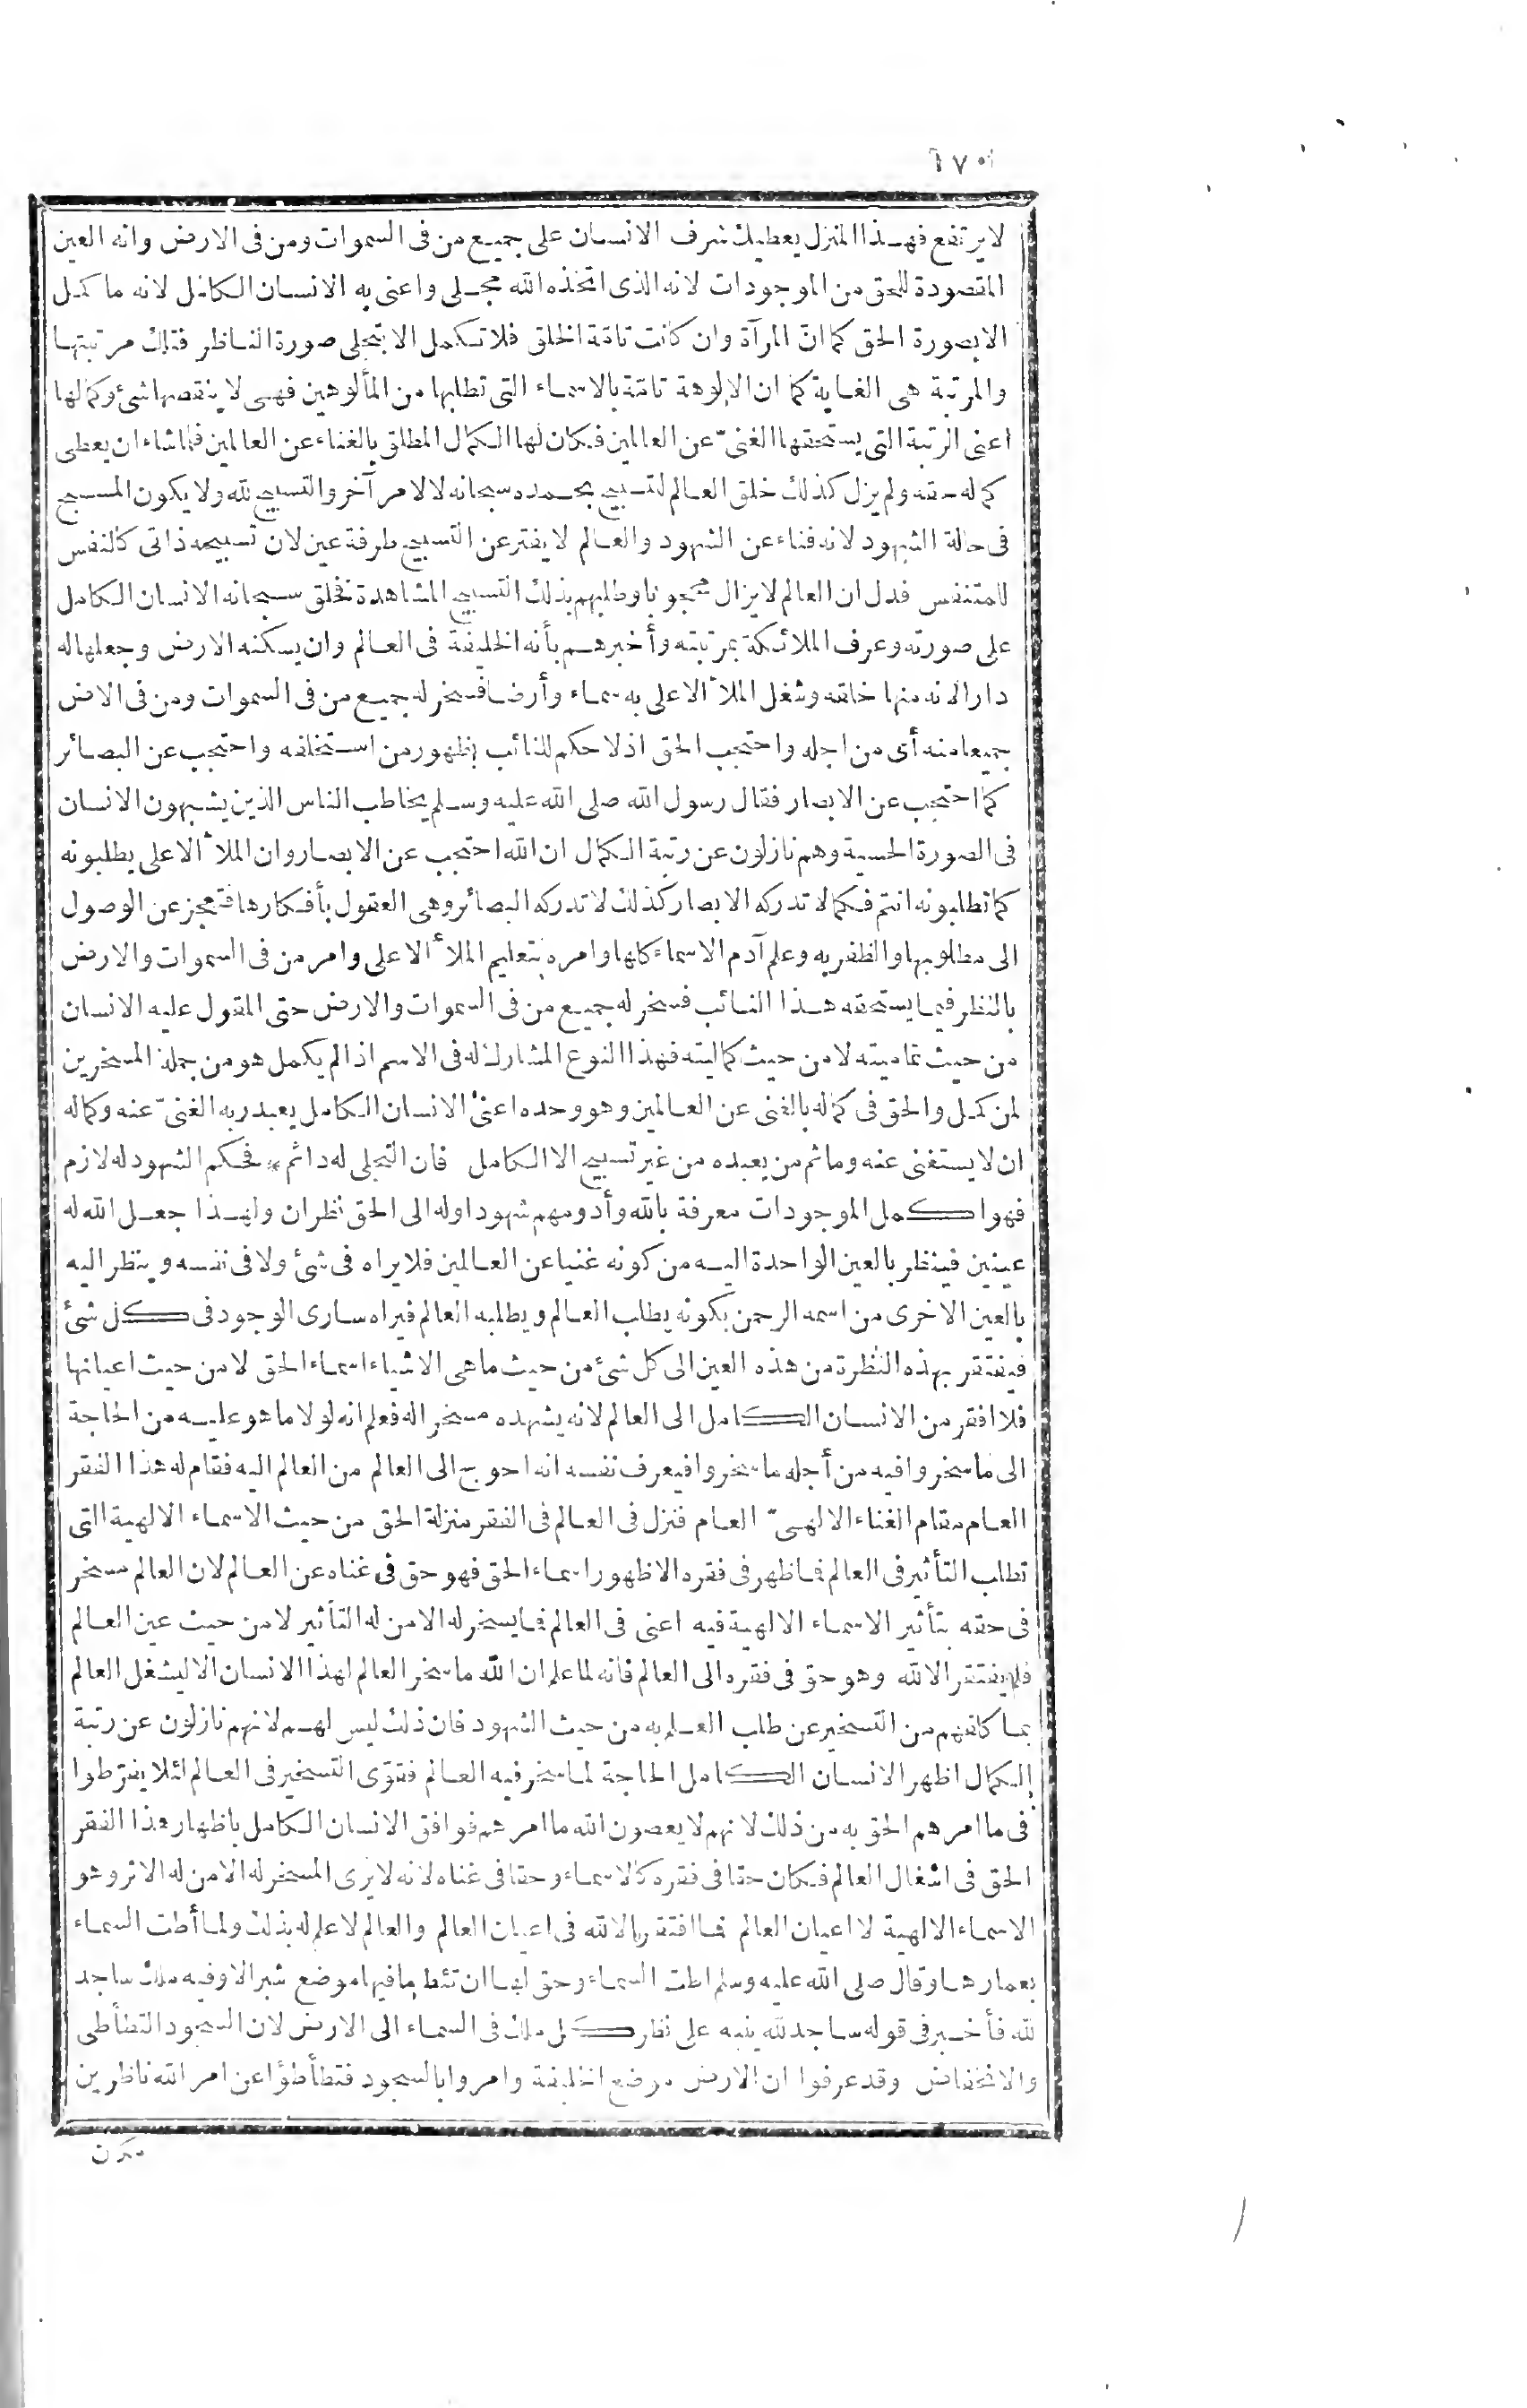 ٦٧٠
لا يرتفع فهـذا المنزل يعطيك شرف الانسان على جميع من فى السموات ومن فى الارض وانه العين
المقصودة للحق من الموجودات لانه الذى اتخذه الله مجـلى واعنى به الانسان الكامل لانه ما كمل
الا بصورة الحق كما انّ المرآة وان كانت تامّة الخلق فلا تكمل الا بتجلى صورة الناظر فتلك مرتبتها
والمرتبة هى الغاية كما ان الالوهة تامّة بالاسماء التى تطلبها من المألوهين فهى لا ينقصها شئ وكمالها
اعنى الرتبة التى يستحقها الغنىّ عن العالمين فكان لها الكمال المطلق بالغناء عن العالمين فلما شاء ان يعطى
كماله حقه ولم يزل كذلك خلق العالم لتسبيح بحمده سبحانه لا لامر آخر والتسبيح لله ولا يكون المسبح
فى حالة الشهود لانه فناء عن الشهود والعالم لا يفتر عن التسبيح طرفة عين لان تسبيحه ذاتى كالنفس
للمتنفس فدل ان العالم لا يزال محجوبا وطلبهم بذلك التسبيح المشاهدة فخلق سبحانه الانسان الكامل
على صورته وعرف الملائكة بمرتبته وأخبرهم بأنه الخليفة فى العالم وان يسكنه الارض وجعلها له
دارا لانه منها خلقه وشغل الملأ الاعلى به سماء وأرضا فسخر له جميع من فى السموات ومن فى الارض
جميعا منه أى من اجله واحتجب الحق اذ لا حكم للنائب بظهور من استخلفه واحتجب عن البصائر
كما احتجب عن الابصار فقال رسول الله صلى الله عليه وسلم يخاطب الناس الذين يشبهون الانسان
فى الصورة الحسية وهم نازلون عن رتبة الكمال ان الله احتجب عن الابصار وان الملأ الاعلى يطلبونه
كما تطلبونه انتم فكما لا تدركه الابصار كذلك لا تدركه البصائر وهى العقول بأفكارها فتعجز عن الوصول
الى مطلوبها والظفر به وعلم آدم الاسماء كلها وامره بتعليم الملأ الاعلى وامر من فى السموات والارض
بالنظر فيما يستحقه هـذا النائب فسخر له جميع من فى السموات والارض حتى المقول عليه الانسان
من حيث تماميته لا من حيث كماليته فهذا النوع المشارك له فى الاسم اذا لم يكمل هو من جملة المسخرين
لمن كمل والحق فى كماله بالغنى عن العالمين وهو وحده اعنى الانسان الكامل يعبد ربه الغنىّ عنه وكماله
ان لا يستغنى عنه وما ثم من يعبده من غير تسبيح الا الكامل فان التجلى له دائم * فحكم الشهود له لازم
فهو اكمل الموجودات معرفة بالله وأدومهم شهودا وله الى الحق نظران ولهذا جعل الله له
عينين فينظر بالعين الواحدة اليه من كونه غنيا عن العالمين فلا يراه فى شئ ولا فى نفسه وينظر اليه
بالعين الاخرى من اسمه الرحمن بكونه يطلب العالم ويطلبه العالم فيراه سارى الوجود فى كل شئ
فيفتقر بهذه النظرة من هذه العين الى كل شئ من حيث ما هى الاشياء اسماء الحق لا من حيث اعيانها
فلا افقر من الانسان الكامل الى العالم لانه يشهده مسخرا له فعلم انه لولا ما هو عليه من الحاجة
الى ما سخروا فيه من أجله ما سخروا فيعرف نفسه انه احوج الى العالم من العالم اليه فقام له هذا الفقر
العام مقام الغناء الالهىّ العام فنزل فى العالم فى الفقر منزلة الحق من حيث الاسماء الالهية التى
تطلب التأثير فى العالم فما ظهر فى فقره الا ظهور اسماء الحق فهو حق فى غناه عن العالم لان العالم مسخر
فى حقه بتأثير الاسماء الالهية فيه اعنى فى العالم فما يسخر له الا من له التأثير لا من حيث عين العالم
فلم يفتقر الا لله وهو حق فى فقره الى العالم فانه لما علم ان الله ما سخر العالم لهذا الانسان الا ليشغل العالم
بما كلفهم من التسخير عن طلب العلم به من حيث الشهود فان ذلك ليس لهم لانهم نازلون عن رتبة
الكمال اظهر الانسان الكامل الحاجة لما سخر فيه العالم فقوّى التسخير فى العالم لئلا يفرّطوا
فى ما امرهم الحق به من ذلك لانهم لا يعصون الله ما امرهم فوافق الانسان الكامل باظهار هذا الفقر
الحق فى اشغال العالم فكان حقا فى فقره كالاسماء وحقا فى غناه لانه لا يرى المسخر له الا من له الاثر وهو
الاسماء الالهية لا اعيان العالم فما افتقر الا لله فى اعيان العالم والعالم لا علم له بذلك ولما أطت السماء
بعمارها وقال صلى الله عليه وسلم اطت السماء وحق لها ان تئط ما فيها موضع شبر الا وفيه ملك ساجد
لله فأخبر فى قوله ساجد لله ينبه على نظر كل ملك فى السماء الى الارض لان السجود التطأطى
والانخفاض وقد عرفوا ان الارض موضع الخليفة وامروا بالسجود فتطأطؤا عن امر الله ناظرين